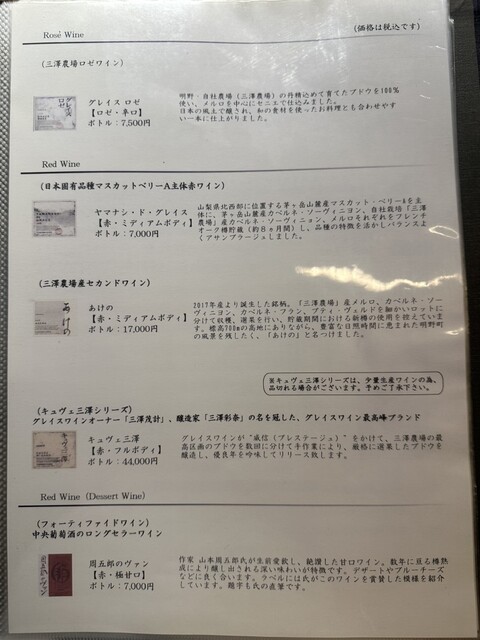 Rosé Wine
(価格は税込です)
(三澤農場ロゼワイン)
グレイス ロゼ
【ロゼ・辛口】
ボトル：7,500円
明野・自社農場（三澤農場）の丹精込めて育てたブドウを100%
使い、メルロを中心にセニエで仕込みました。
日本の風土で醸され、和の食材を使ったお料理とも合わせやす
い一本に仕上がりました。
Red Wine
(日本固有品種マスカットベリーA主体赤ワイン)
ヤマナシ・ド・グレイス
【赤・ミディアムボディ】
ボトル：7,000円
山梨県北西部に位置する茅ヶ岳山麓産マスカット・ベリーAを主
体に、茅ヶ岳山麓産カベルネ・ソーヴィニヨン、自社栽培「三澤
農場」産カベルネ・ソーヴィニョン、メルロそれぞれをフレンチ
オーク樽貯蔵（約８ヵ月間）し、品種の特徴を活かしバランスよ
くアサンブラージュしました。
(三澤農場産セカンドワイン)
あけの
【赤・ミディアムボディ】
ボトル：17,000円
2017年産より誕生した銘柄。「三澤農場」産メルロ、カベルネ・ソー
ヴィニヨン、カベルネ・フラン、プティ・ヴェルドを細かいロットに
分けて収穫、選果を行い、貯蔵期間における新樽の使用を控えていま
す。標高700mの高地にありながら、豊富な日照時間に恵まれた明野町
の風景を残したく、「あけの」と名づけました。
※キュヴェ三澤シリーズは、少量生産ワインの為、
品切れる場合がございます。予めご了承下さい。
(キュヴェ三澤シリーズ)
グレイスワインオーナー「三澤茂計」、醸造家「三澤彩奈」の名を冠した、グレイスワイン最高峰ブランド
キュヴェ三澤
【赤・フルボディ】
ボトル：44,000円
グレイスワインが“威信（プレステージュ）”をかけて、三澤農場の最
高区画のブドウを数回に分けて手作業により、厳格に選果したブドウを
醸造し、優良年を吟味してリリース致します。
Red Wine (Dessert Wine)
(フォーティファイドワイン)
中央葡萄酒のロングセラーワイン
周五郎のヴァン
【赤・極甘口】
ボトル：7,000円
作家 山本周五郎氏が生前愛飲し、絶讃した甘口ワイン。数年に亘る樽熟
成により醸し出される深い味わいが特徴です。デザートやブルーチーズ
などに良く合います。ラベルには氏がこのワインを賞賛した模様を紹介
しています。題字も氏の直筆です。